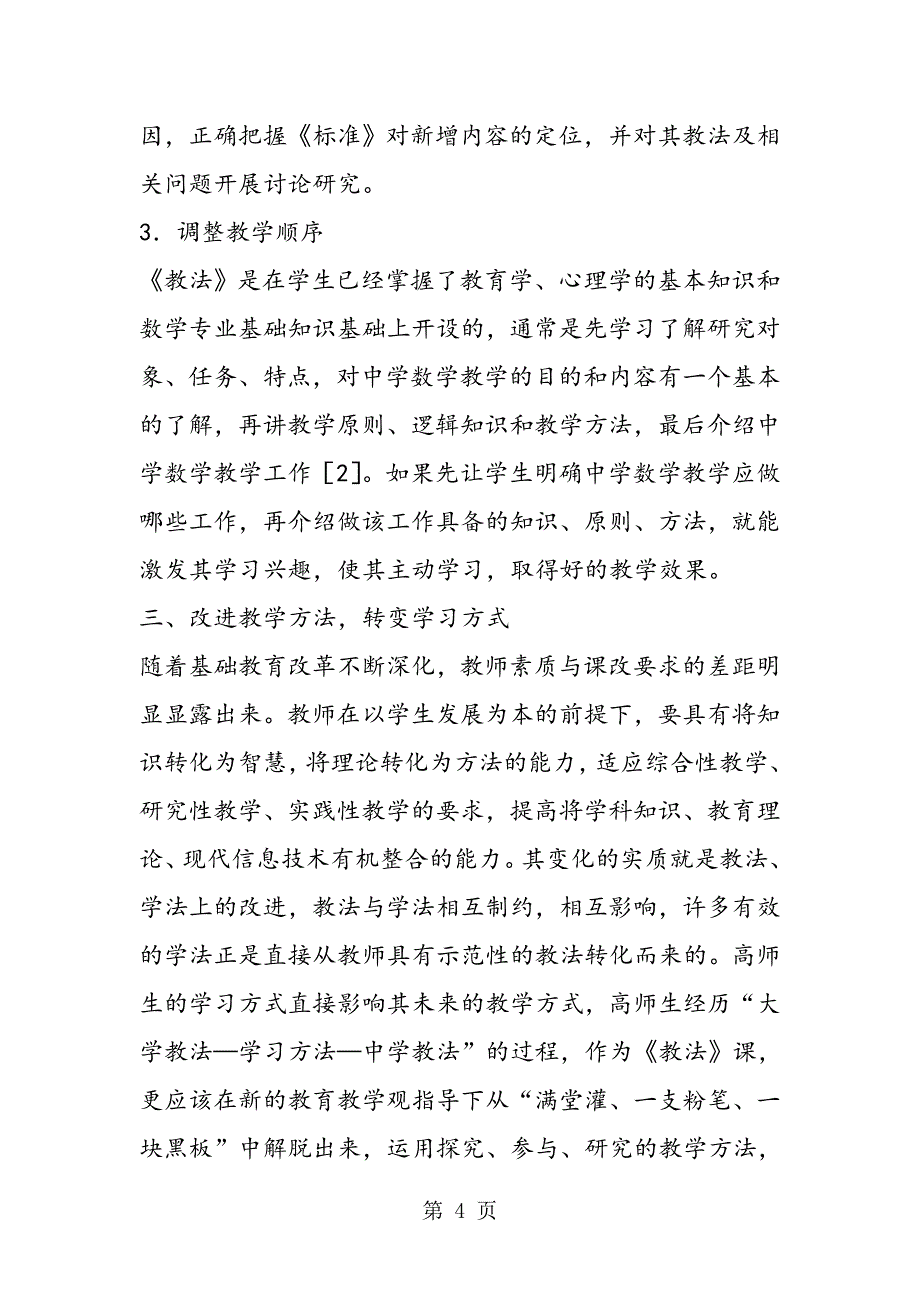 因，正确把握《标准》对新增内容的定位，并对其教法及相
关问题开展讨论研究。
3．调整教学顺序
《教法》是在学生已经掌握了教育学、心理学的基本知识和
数学专业基础知识基础上开设的，通常是先学习了解研究对
象、任务、特点，对中学数学教学的目的和内容有一个基本
的了解，再讲教学原则、逻辑知识和教学方法，最后介绍中
学数学教学工作［2］。如果先让学生明确中学数学教学应做
哪些工作，再介绍做该工作具备的知识、原则、方法，就能
激发其学习兴趣，使其主动学习，取得好的教学效果。
三、改进教学方法，转变学习方式
随着基础教育改革不断深化，教师素质与课改要求的差距明
显显露出来。教师在以学生发展为本的前提下，要具有将知
识转化为智慧，将理论转化为方法的能力，适应综合性教学、
研究性教学、实践性教学的要求，提高将学科知识、教育理
论、现代信息技术有机整合的能力。其变化的实质就是教法、
学法上的改进，教法与学法相互制约，相互影响，许多有效
的学法正是直接从教师具有示范性的教法转化而来的。高师
生的学习方式直接影响其未来的教学方式，高师生经历“大
学教法—学习方法—中学教法”的过程，作为《教法》课，
更应该在新的教育教学观指导下从“满堂灌、一支粉笔、一
块黑板”中解脱出来，运用探究、参与、研究的教学方法，
第 4 页